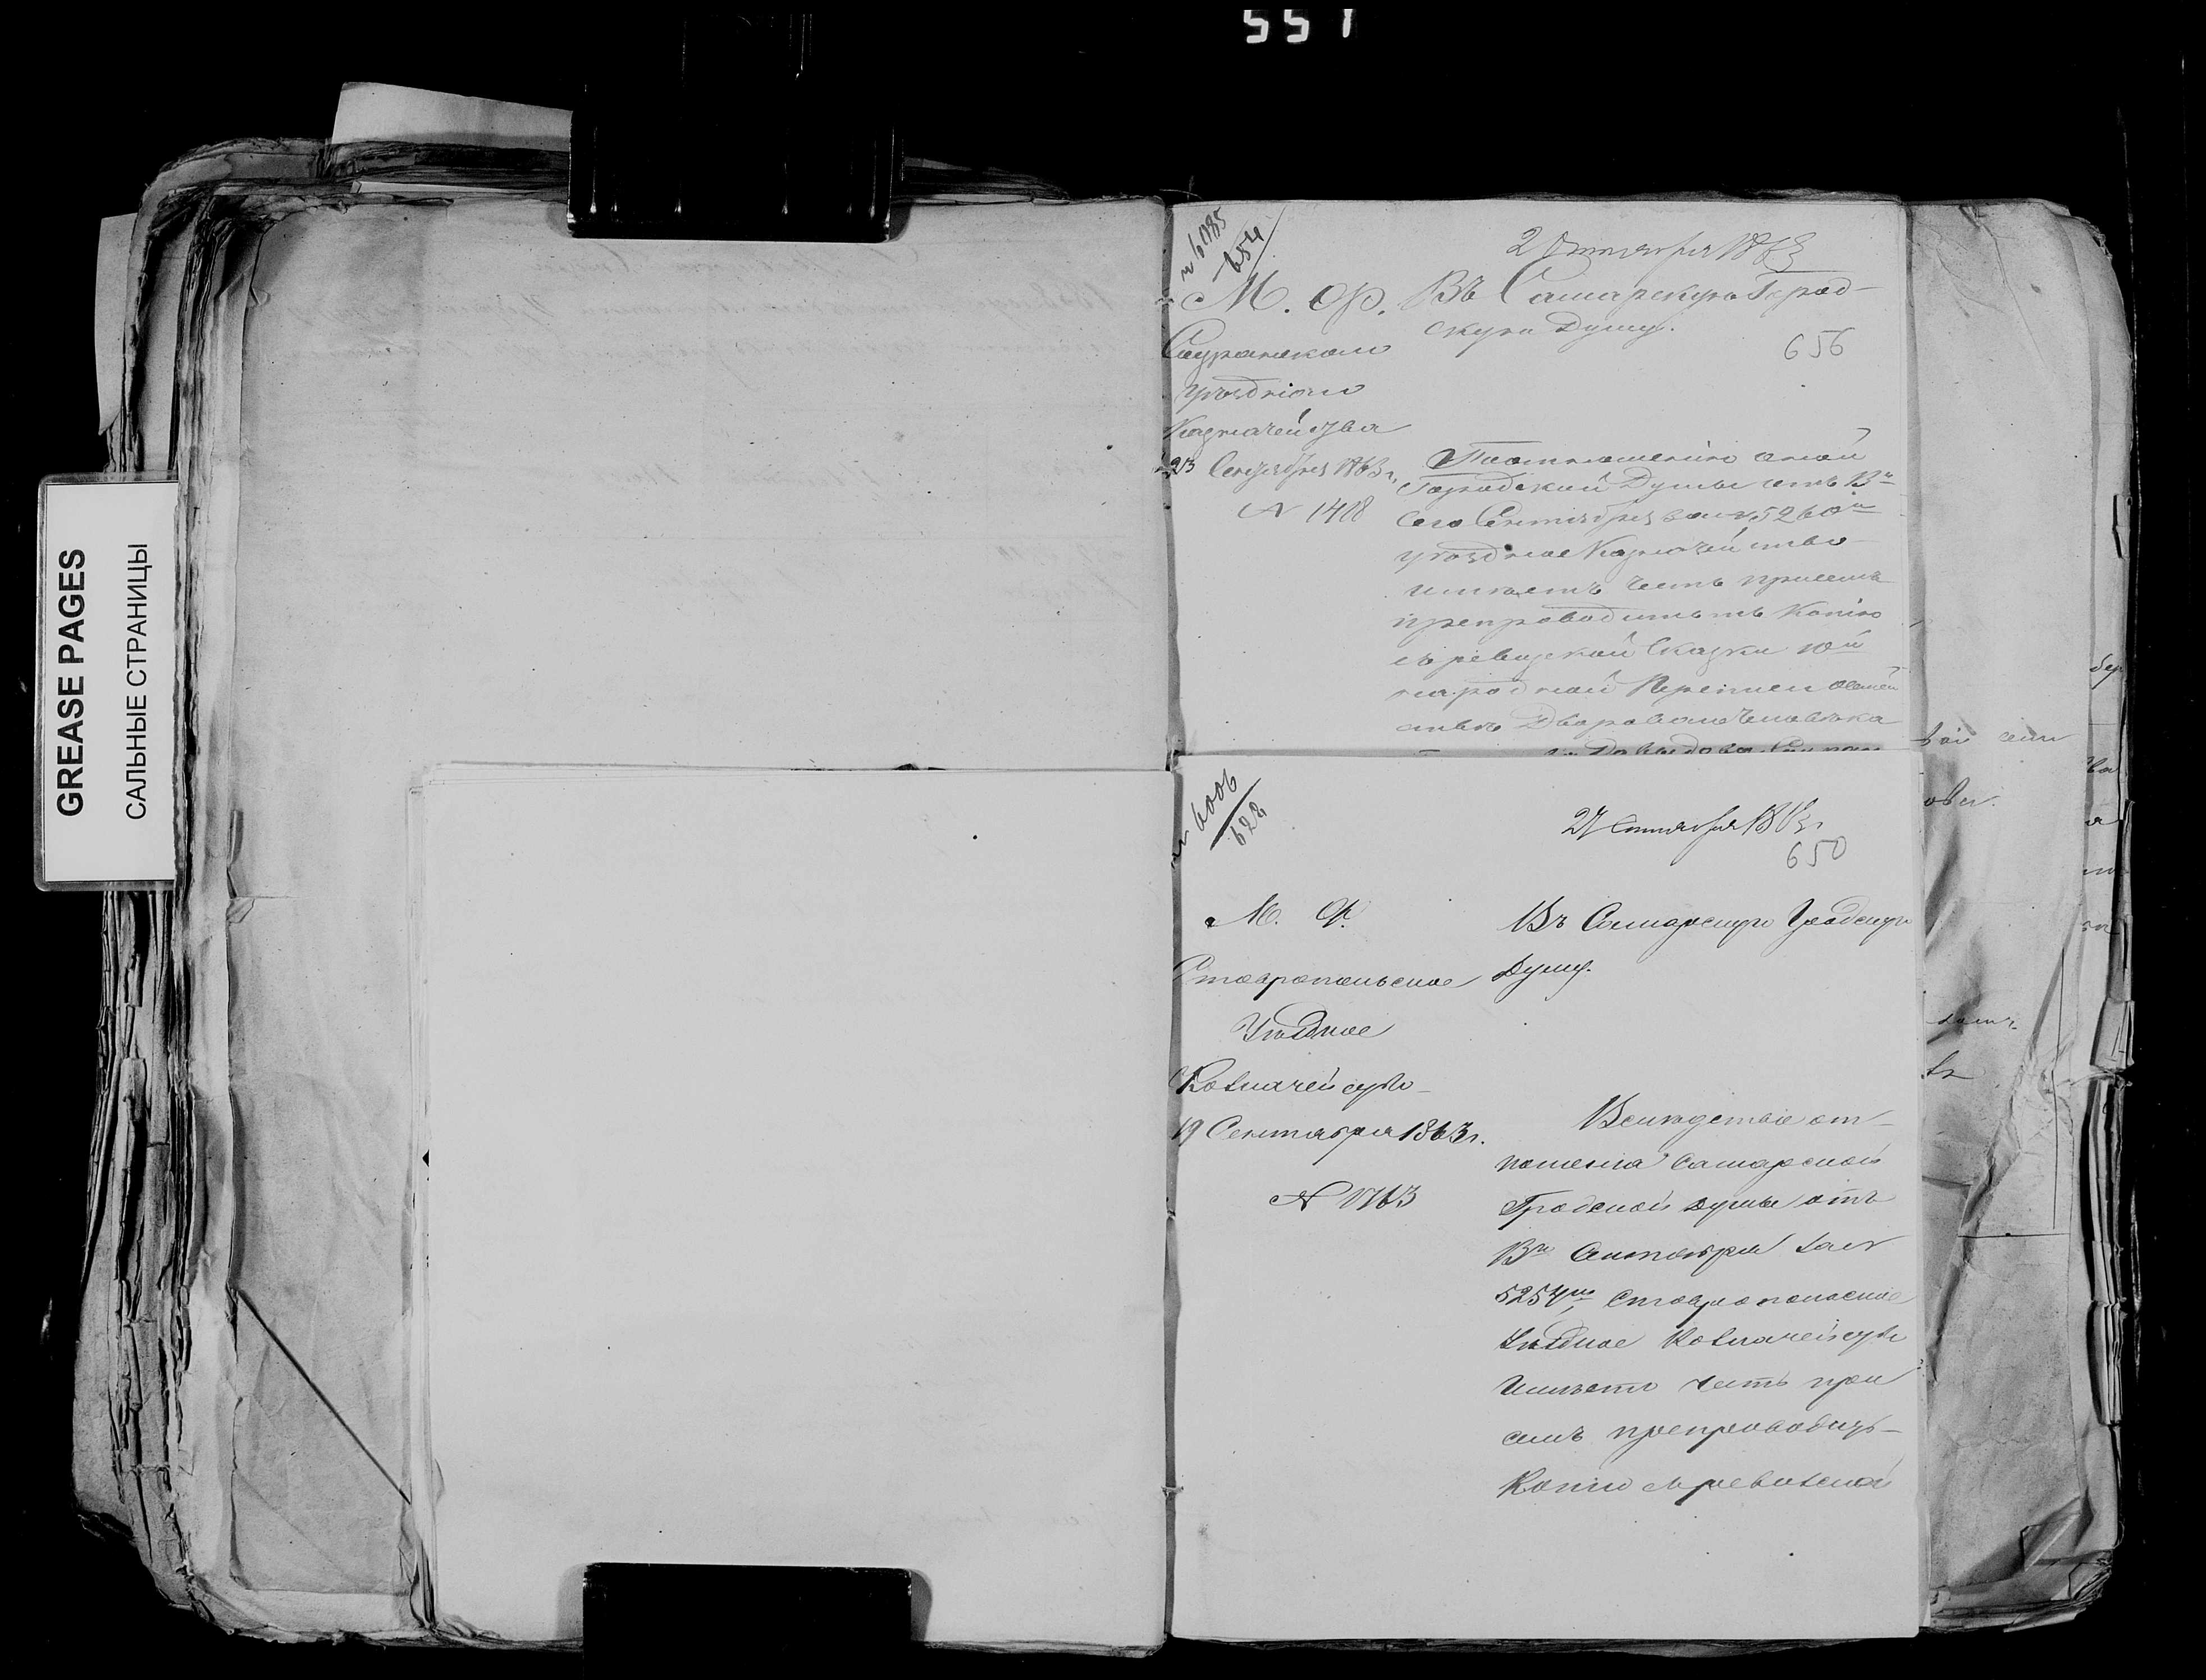 551
GREASE PAGES
САЛЬНЫЕ СТРАНИЦЫ
№ 6085
654
2 Октября 1863
М. Ф.
Въ Самарскую Город-
скую Думу.
656
уѣзднаго
Казначейства
23 Сентября 1863 г.
№ 1418
Городской Думы отъ 13го
сего Сентября за № 5260м
уѣздное Казначейство
имѣетъ честь при семъ
препроводить копію
съ ревизской сказки 10й
народной переписи
Двороваго человѣка
Давыдова
№ 6006
628
27 Сентября 1863 г.
650
М. Ф.
Ставропольское
Уѣздное
Казначейство
19 Сентября 1863 г.
№ 1763
Въ Самарскую Градскую
Думу.
Вслѣдствіе от-
ношенія Самарской
Градской Думы отъ
13го Сентября за №
5254мъ, Ставропольское
Уѣздное Казначейство
имѣетъ честь при
семъ препроводить
Копію съ ревизской